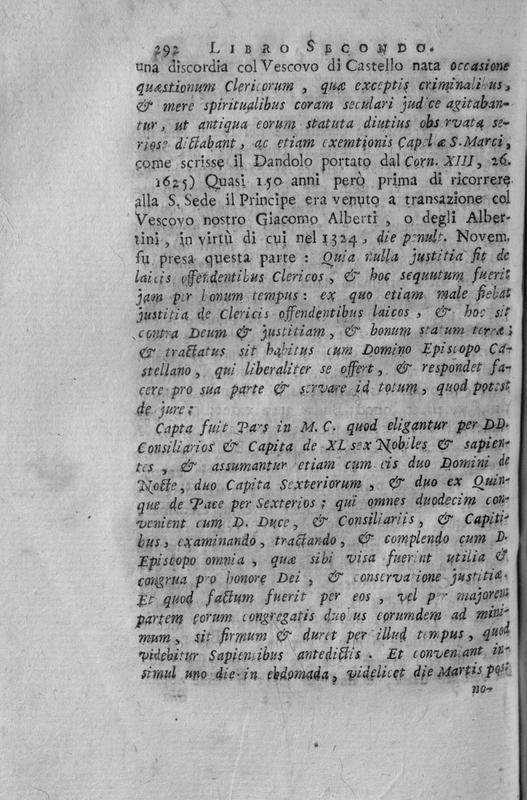 292 LIBRO SECONDO.
una discordia col Vescovo di Castello nata occasione
quæstionum Clericorum, quæ exceptis criminalibus,
& mere spiritualibus coram seculari judice agitaban-
tur, ut antiqua eorum statuta diutius observata se-
riose dictabant, ac etiam exemtionis Capellæ S. Marci,
come scrisse il Dandolo portato dal Corn. XIII, 26.
1625) Quasi 150 anni però prima di ricorrere
alla S. Sede il Principe era venuto a transazione col
Vescovo nostro Giacomo Alberti, o degli Alber-
tini, in virtù di cui nel 1324, die penult. Novem.
fu presa questa parte: Quia nulla justitia fit de
laicis offendentibus Clericos, & hoc sequutum fuerit
jam per bonum tempus: ex quo etiam male fiebat
justitia de Clericis offendentibus laicos, & hoc sit
contra Deum & justitiam, & bonum statum terræ;
& tractatus sit habitus cum Domino Episcopo Ca-
stellano, qui liberaliter se offert, & respondet fa-
cere pro sua parte & servare id totum, quod potest
de jure:
Capta fuit Pars in M. C. quod eligantur per DD.
Consiliarios & Capita de XL sex Nobiles & sapien-
tes, & assumantur etiam cum eis duo Domini de
Nocte, duo Capita Sexteriorum, & duo ex Quin-
que de Pace per Sexterios; qui omnes duodecim con-
venient cum D. Duce, & Consiliariis, & Capiti-
bus, examinando, tractando, & complendo cum D.
Episcopo omnia, quæ sibi visa fuerint utilia &
congrua pro honore Dei, & conservatione justitiæ.
Et quod factum fuerit per eos, vel per majorem
partem eorum congregatis duobus eorumdem ad mini-
mum, sit firmum & duret per illud tempus, quod
videbitur Sapientibus antedictis. Et conveniant in-
simul uno die in ebdomada, videlicet die Martis post
no-